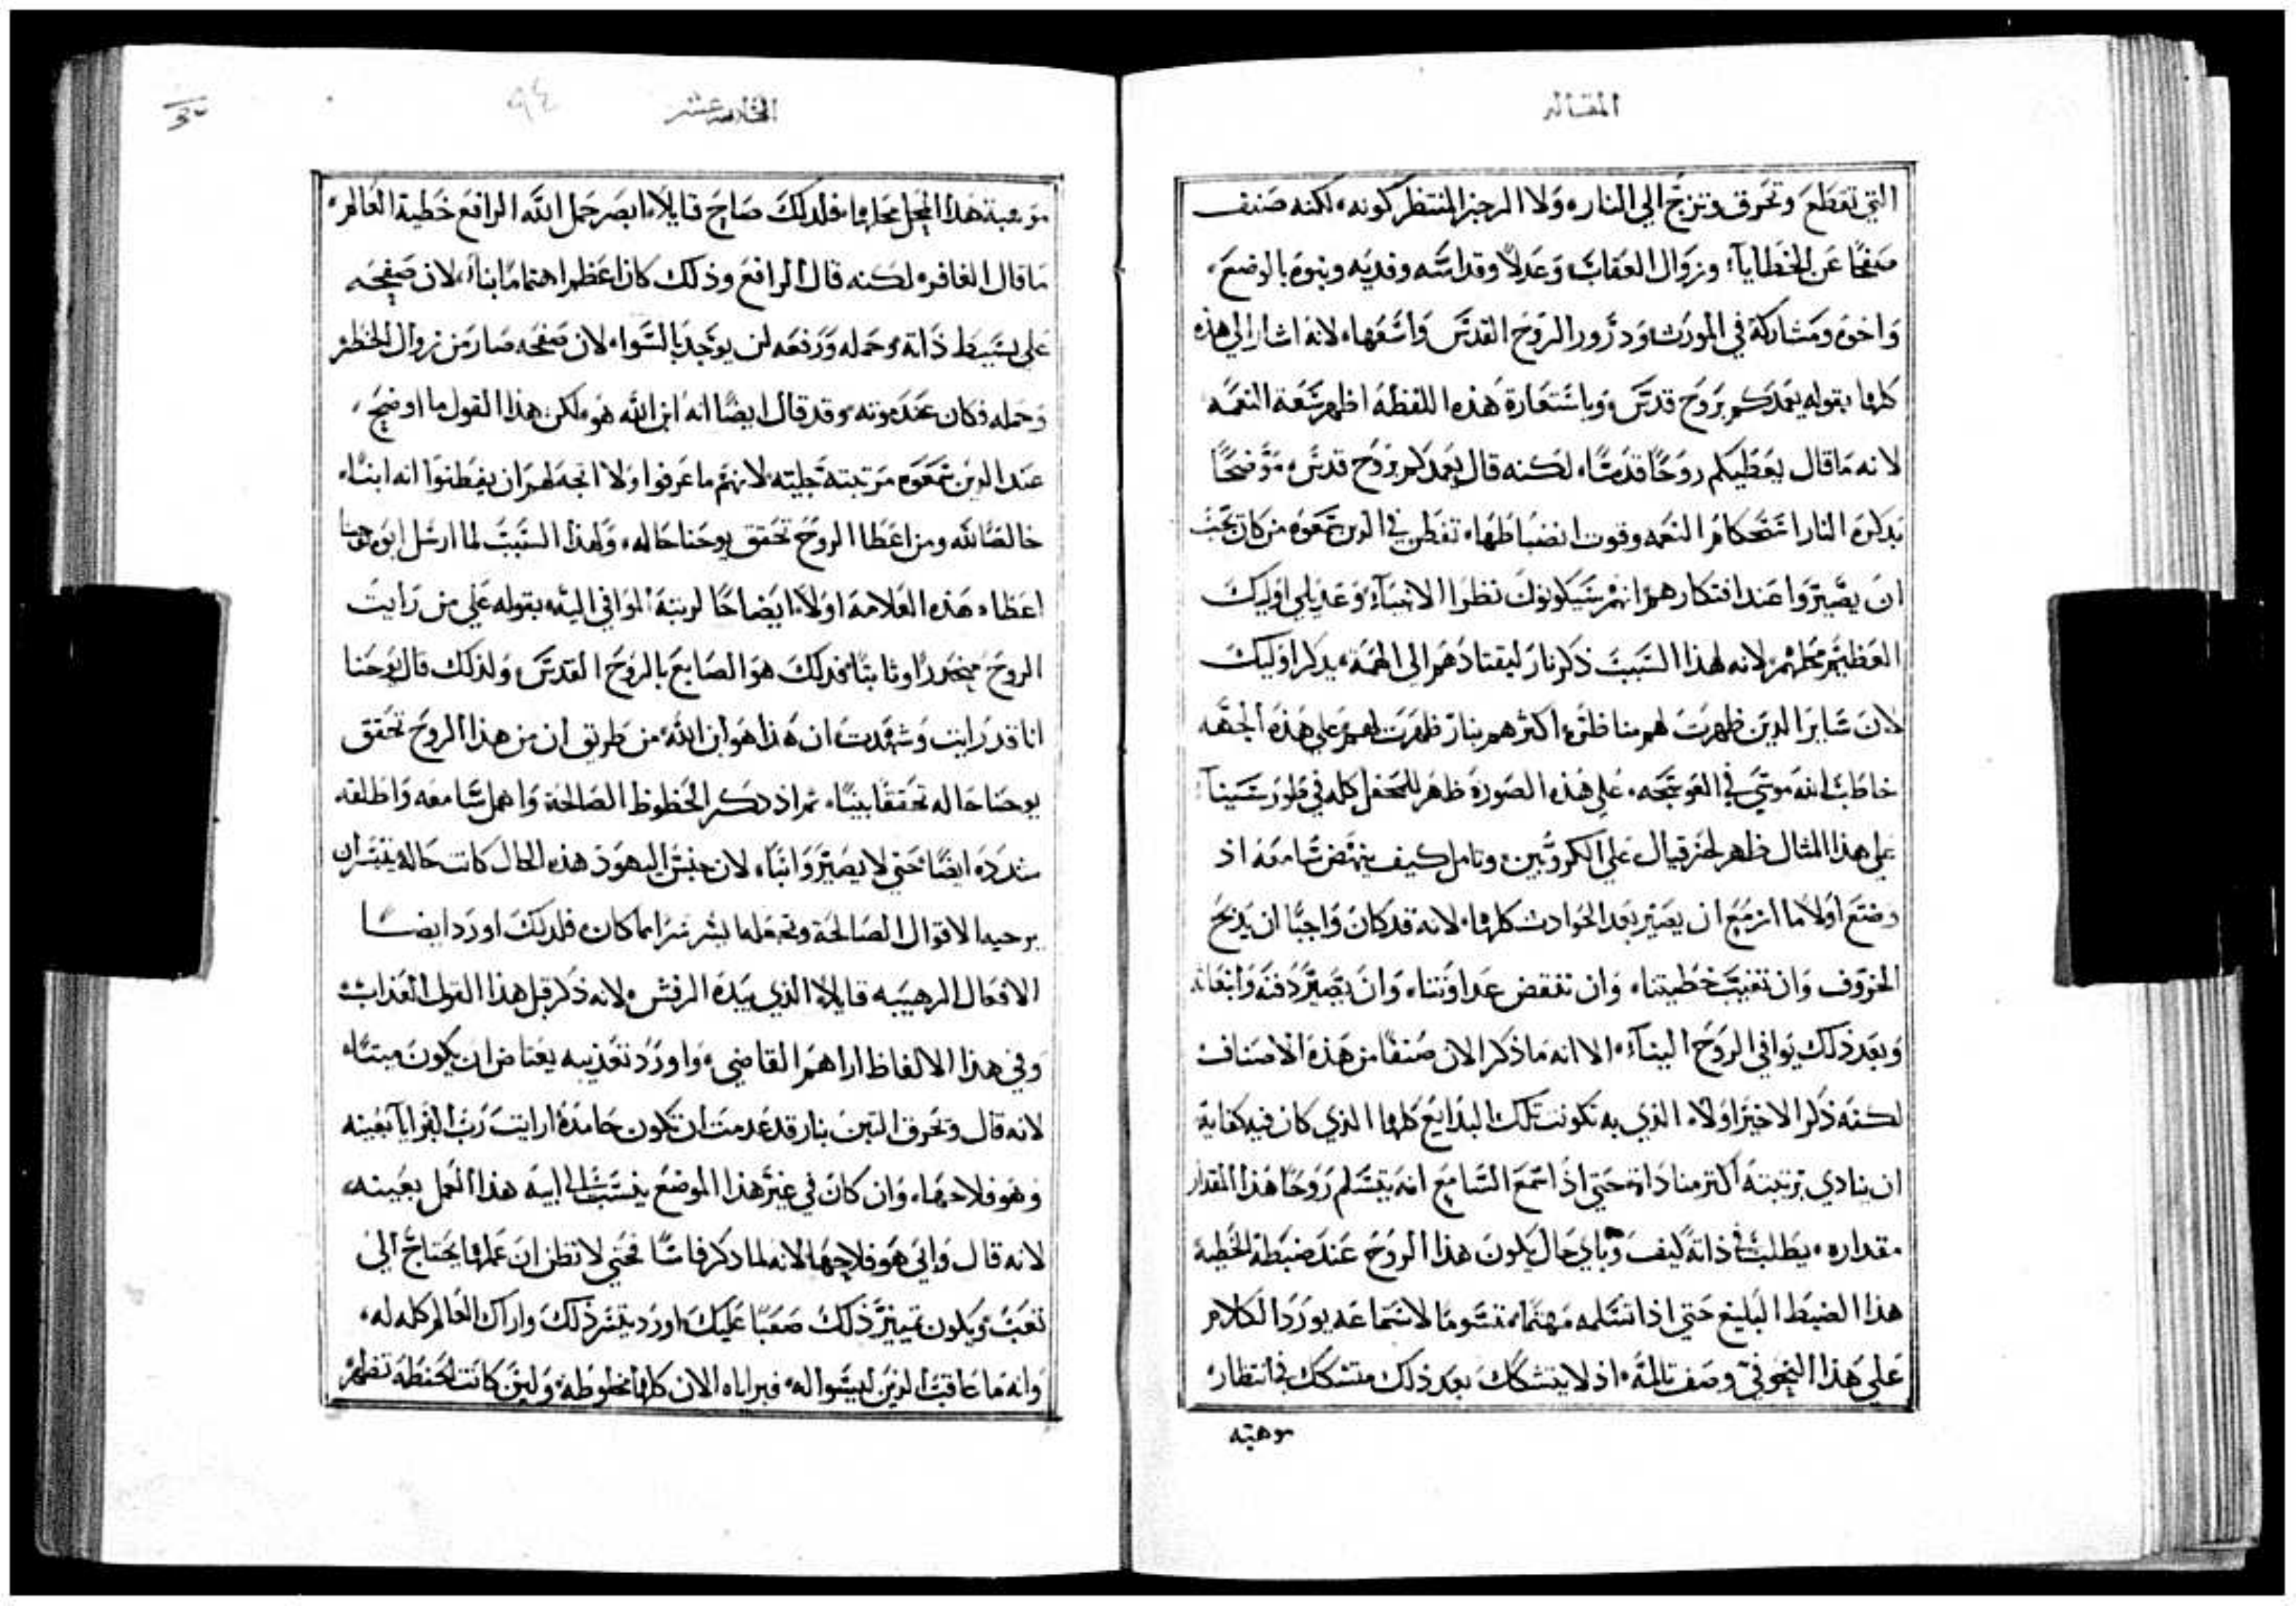 المقاله
التي تقطع وتحرق وتزج الي النار، ولا الرجز المنتظر كونه، لكنه صنف
صفحًا عن الخطايا، وزوال العقاب وعدلاً وقداسه وفديه وبنوة بالوضع،
واخوة ومشاركة في المورث ودرور الروح القدس واسعها، لانه اشار الي هذه
كلها بقوله يعمدكم بروح قدس، وباستعارة هذه اللفظه اظهر سعة النعمه
لانه ماقال يعطيكم روحًا قدسًا، لكنه قال يعمدكم بروح قدس، موضحًا
بذكره النار استحكام النعمه وفوت انضباطها، تفطن في الذين سمعوه من كان يجب
ان يصيروا عند افتكارهم انهم سيكونون نظرا الانبياء، وعديلي اوليك
العظيم محلهم، لانه لهذا السبب ذكر نار ليقتادهم الي الهمة، بذكر اوليك
لان ساير الذين ظهرت لهم مناظره اكثرهم بنار ظهرت لهم، علي هذه الجهه
خاطب الله موسي في العوسجه، علي هذه الصوره ظهر للمحفل كله في طور سينا
علي هذا المثال ظهر لحزقيال علي الكروبين، وتامل كيف ينهض سامعه اذ
وضع اولاً ما ازمع ان يصير بعد الحوادث كلها، لانه قد كان واجبًا ان يذبح
الخروف وان تغيب خطيتنا، وان تنقض عداوتنا، وان يصير دفنه وانبعاثه
وبعد ذلك يوافي الروح الينا، الا انه ما ذكر الان صنفًا من هذه الاصناف
لكنه ذكر الاخير اولاً، الذي به تكونت تلك البدايع كلها الذي كان فيه كفاية
ان ينادي برتبته اكثر مناداة حتي اذا سمع السامع انه يتسلم روحًا هذا المقدار
مقداره، يطلب في ذاته كيف وباي حال يكون هذا الروح عند ضبطة الخطية
هذا الضبط البليغ حتي اذا تسلمه مهتمًا، متسومًا لاستماعه يورد الكلام
علي هذا النحو في وصف تالمه، اذ لا يتشكك بعد ذلك متشكك في انتظار
موهبته
الخامسة عشر
٩٤
موهبة هذا المحل محلها، فلذلك صاح قايلاً، ابصر حمل الله الرافع خطية العالم،
ماقال الغافر، لكنه قال الرافع وذلك كان اعظم اهتمامًا بنا، لان صفحه
علي بسيط ذاته، وحمله ورفعه لن يوجد بالسواء لان صفحه صار من زوال الخطر
وحمله فكان عند موته، وقد قال ايضًا انه ابن الله هو، لكن هذا القول ما اوضح،
عند الذين سمعوه مرتبته جليته، لانهم ما عرفوا ولا اتجه لهم ان يفطنوا انه ابنًا،
خالصًا لله ومن اعطا الروح تحقق يوحنا حاله، ولهذا السبب لما ارسل ابوه يوحنا
اعطاه هذه العلامه اولاً، ايضاحًا لرتبة الموافي اليه، بقوله علي من رايت
الروح منحدرًا وثابتًا، فذلك هو الصابغ بالروح القدس، ولذلك قال يوحنا
انا قد رايت وشهدت ان هذا هو ابن الله، من طريق ان من هذا الروح تحقق
يوحنا حاله تحققًا بينًا، ثم اذ ذكر الحظوظ الصالحة واهمل سامعه واطلقه
شدده ايضًا حتي لا يصير وانيًا، لان جنس اليهود هذه الحال كانت حاله يتيسران
يرخيها الاقوال الصالحة وتجعلها بشر شرًا مما كان، فلذلك اورد ايضًا
الافعال الرهيبه قايلاً، الذي بيده الرفش، لانه ذكر قبل هذا القول العذاب،
وفي هذا الالفاظ اراهم القاضي، واورد تعذيبه يعتاض ان يكون ميتًا،
لانه قال وتحرق التبن بنار قد عدمت ان تكون خامدة، ارايت رب البرايا بعينه
وهو فلاحها، وان كان في غير هذا الموضع ينسب الي ابيه هذا العمل بعينه،
لانه قال وابي هو فلاحها، لانه لما ذكر فاسًا فحتي لا تظن ان عملها يحتاج الي
تعب، ويكون تمييز ذلك صعبًا عليك، اورد تيسر ذلك واراك العالم كله له،
وانه ما عاقب الذين ليسوا له، فبراياه الان كلها مخلوطه، ولين كانت الحنطه تظهر